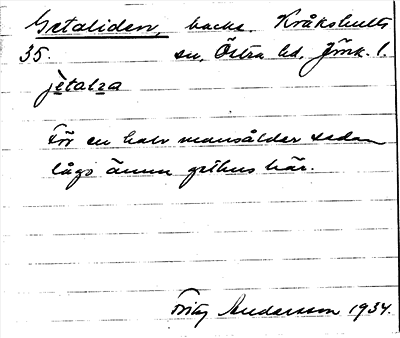 Getaliden, backe. Kråkshults
35. sn, Östra hd, Jönk. l.
jetalia
För en halv mansålder sedan
lågo ännu gethus här.
Fritz Andersson 1934.